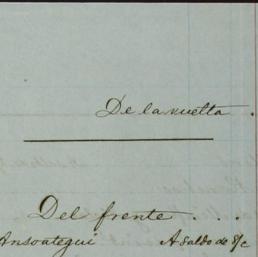 De la vuelta .
Del frente . . .
Ansoategui A saldo de s/c